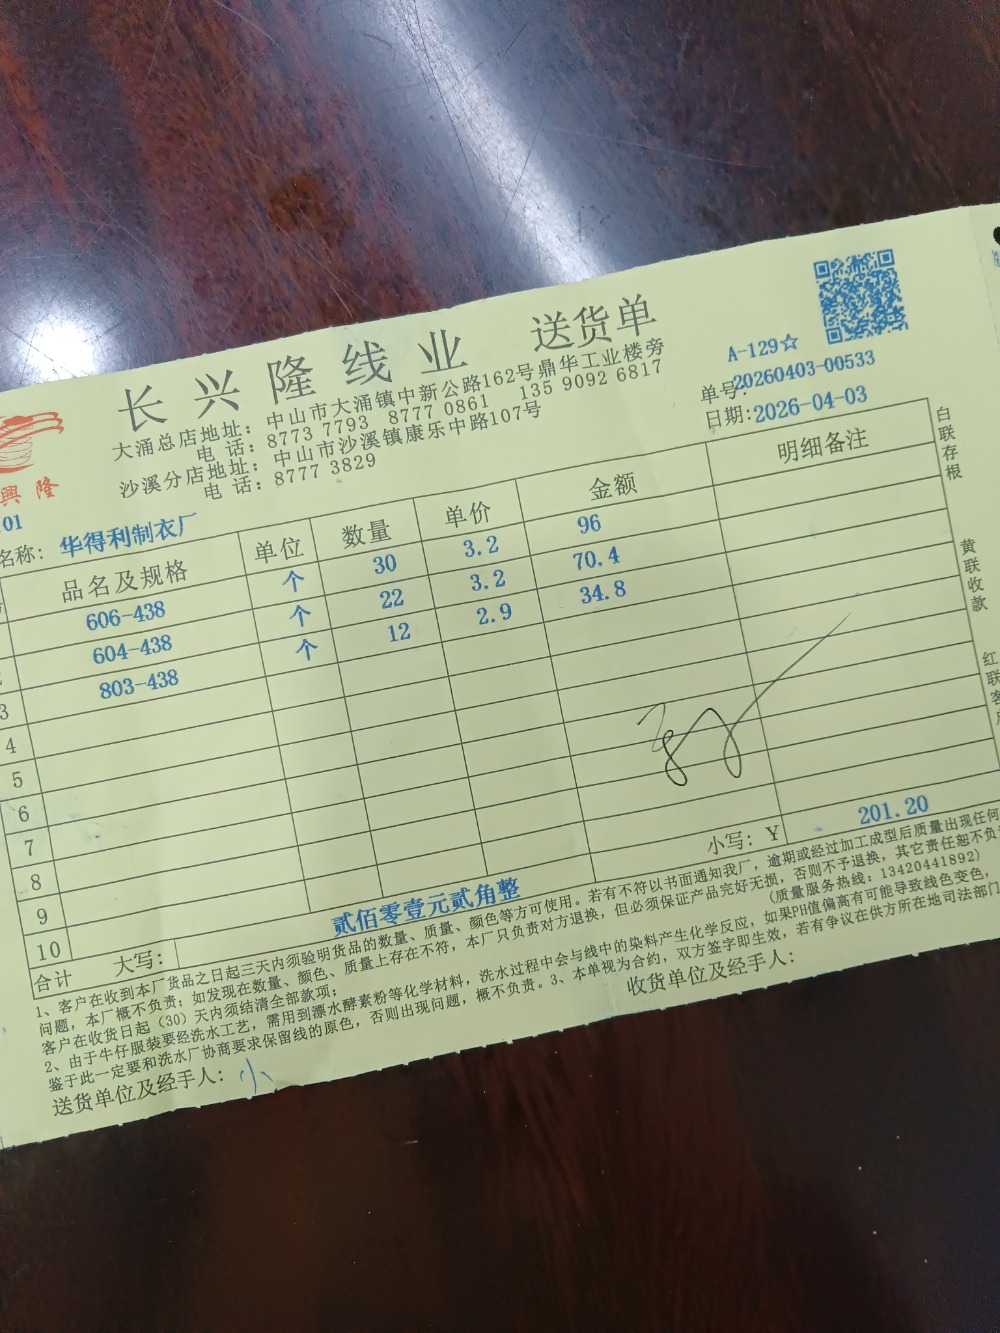 长兴隆线业 送货单
A-129☆
大涌总店地址: 中山市大涌镇中新公路162号鼎华工业楼旁
电 话: 8773 7793 8777 0861 135 9092 6817
沙溪分店地址: 中山市沙溪镇康乐中路107号
电 话: 8777 3829
单号: 20260403-00533
日期: 2026-04-03
興隆
01
名称: 华得利制衣厂
品名及规格 单位 数量 单价 金额 明细备注
606-438 个 30 3.2 96
604-438 个 22 3.2 70.4
3 803-438 个 12 2.9 34.8
4
5
6
7
8
9
10
合计 大写: 贰佰零壹元贰角整 小写: Y 201.20
白联存根
黄联收款
红联客
1、客户在收到本厂货品之日起三天内须验明货品的数量、质量、颜色等方可使用。若有不符以书面通知我厂, 逾期或经过加工成型后质量出现任何
问题, 本厂概不负责; 如发现在数量、颜色、质量上存在不符, 本厂只负责对方退换, 但必须保证产品完好无损, 否则不予退换, 其它责任恕不负
客户在收货日起 (30) 天内须结清全部款项;
(质量服务热线: 13420441892)
2、由于牛仔服装要经洗水工艺, 需用到漂水酵素粉等化学材料, 洗水过程中会与线中的染料产生化学反应, 如果PH值偏高有可能导致线色变色,
鉴于此一定要和洗水厂协商要求保留线的原色, 否则出现问题, 概不负责。3、本单视为合约, 双方签字即生效, 若有争议在供方所在地司法部门
送货单位及经手人: 小
收货单位及经手人: